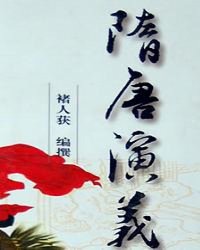 隋唐演義
褚人获 编撰